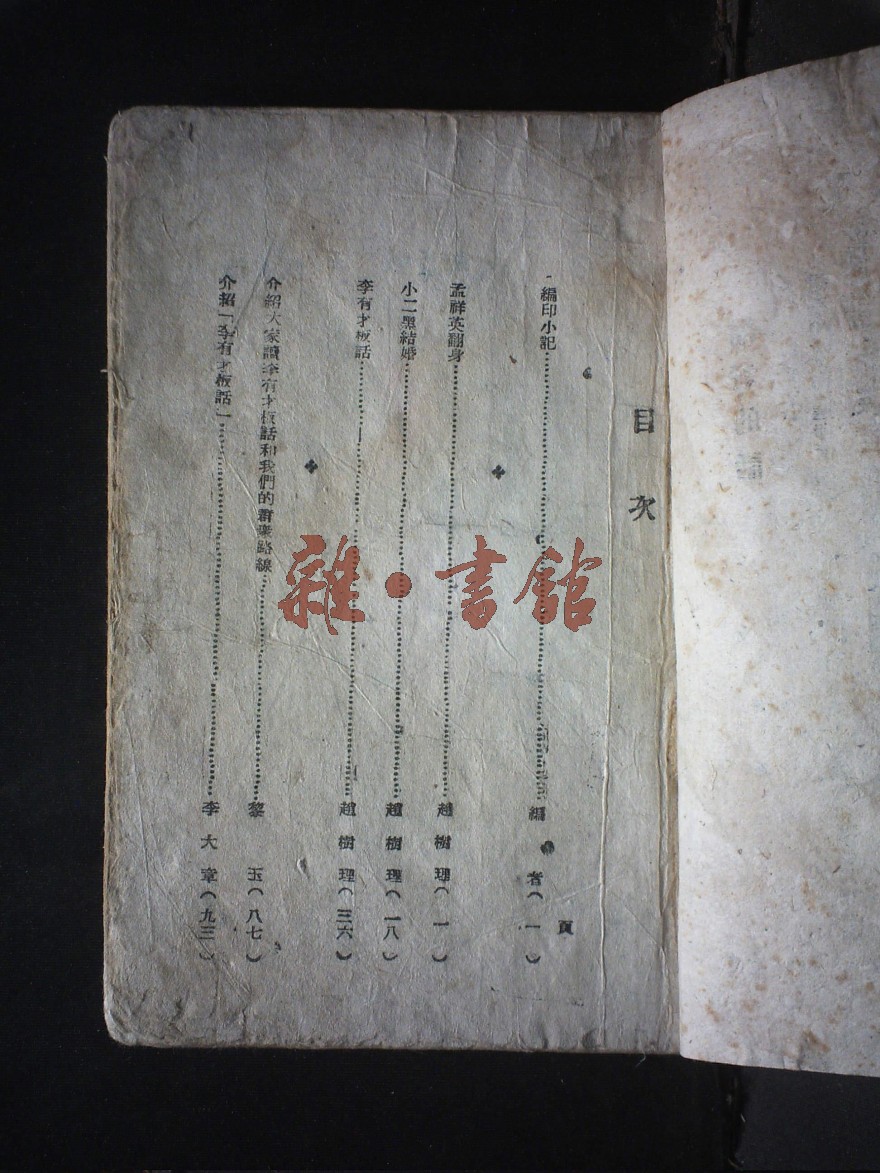 目次
頁
編印小記……編者(一)
孟祥英翻身……趙樹理(一)
小二黑結婚……趙樹理(一八)
李有才板話……趙樹理(三六)
介紹大家讀李有才板話和我們的群眾路線……黎玉(八七)
介紹「李有才板話」……李大章(九三)
雜·書館